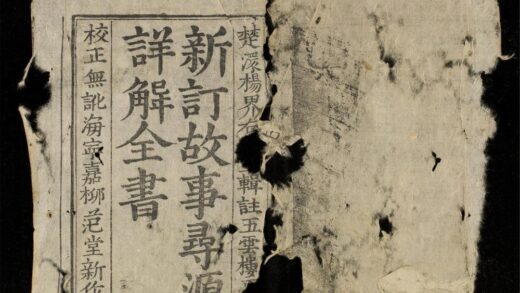 楚澴楊界輯註五雲樓
新訂故事尋源
詳解全書
校正無訛海寧嘉柳范堂新